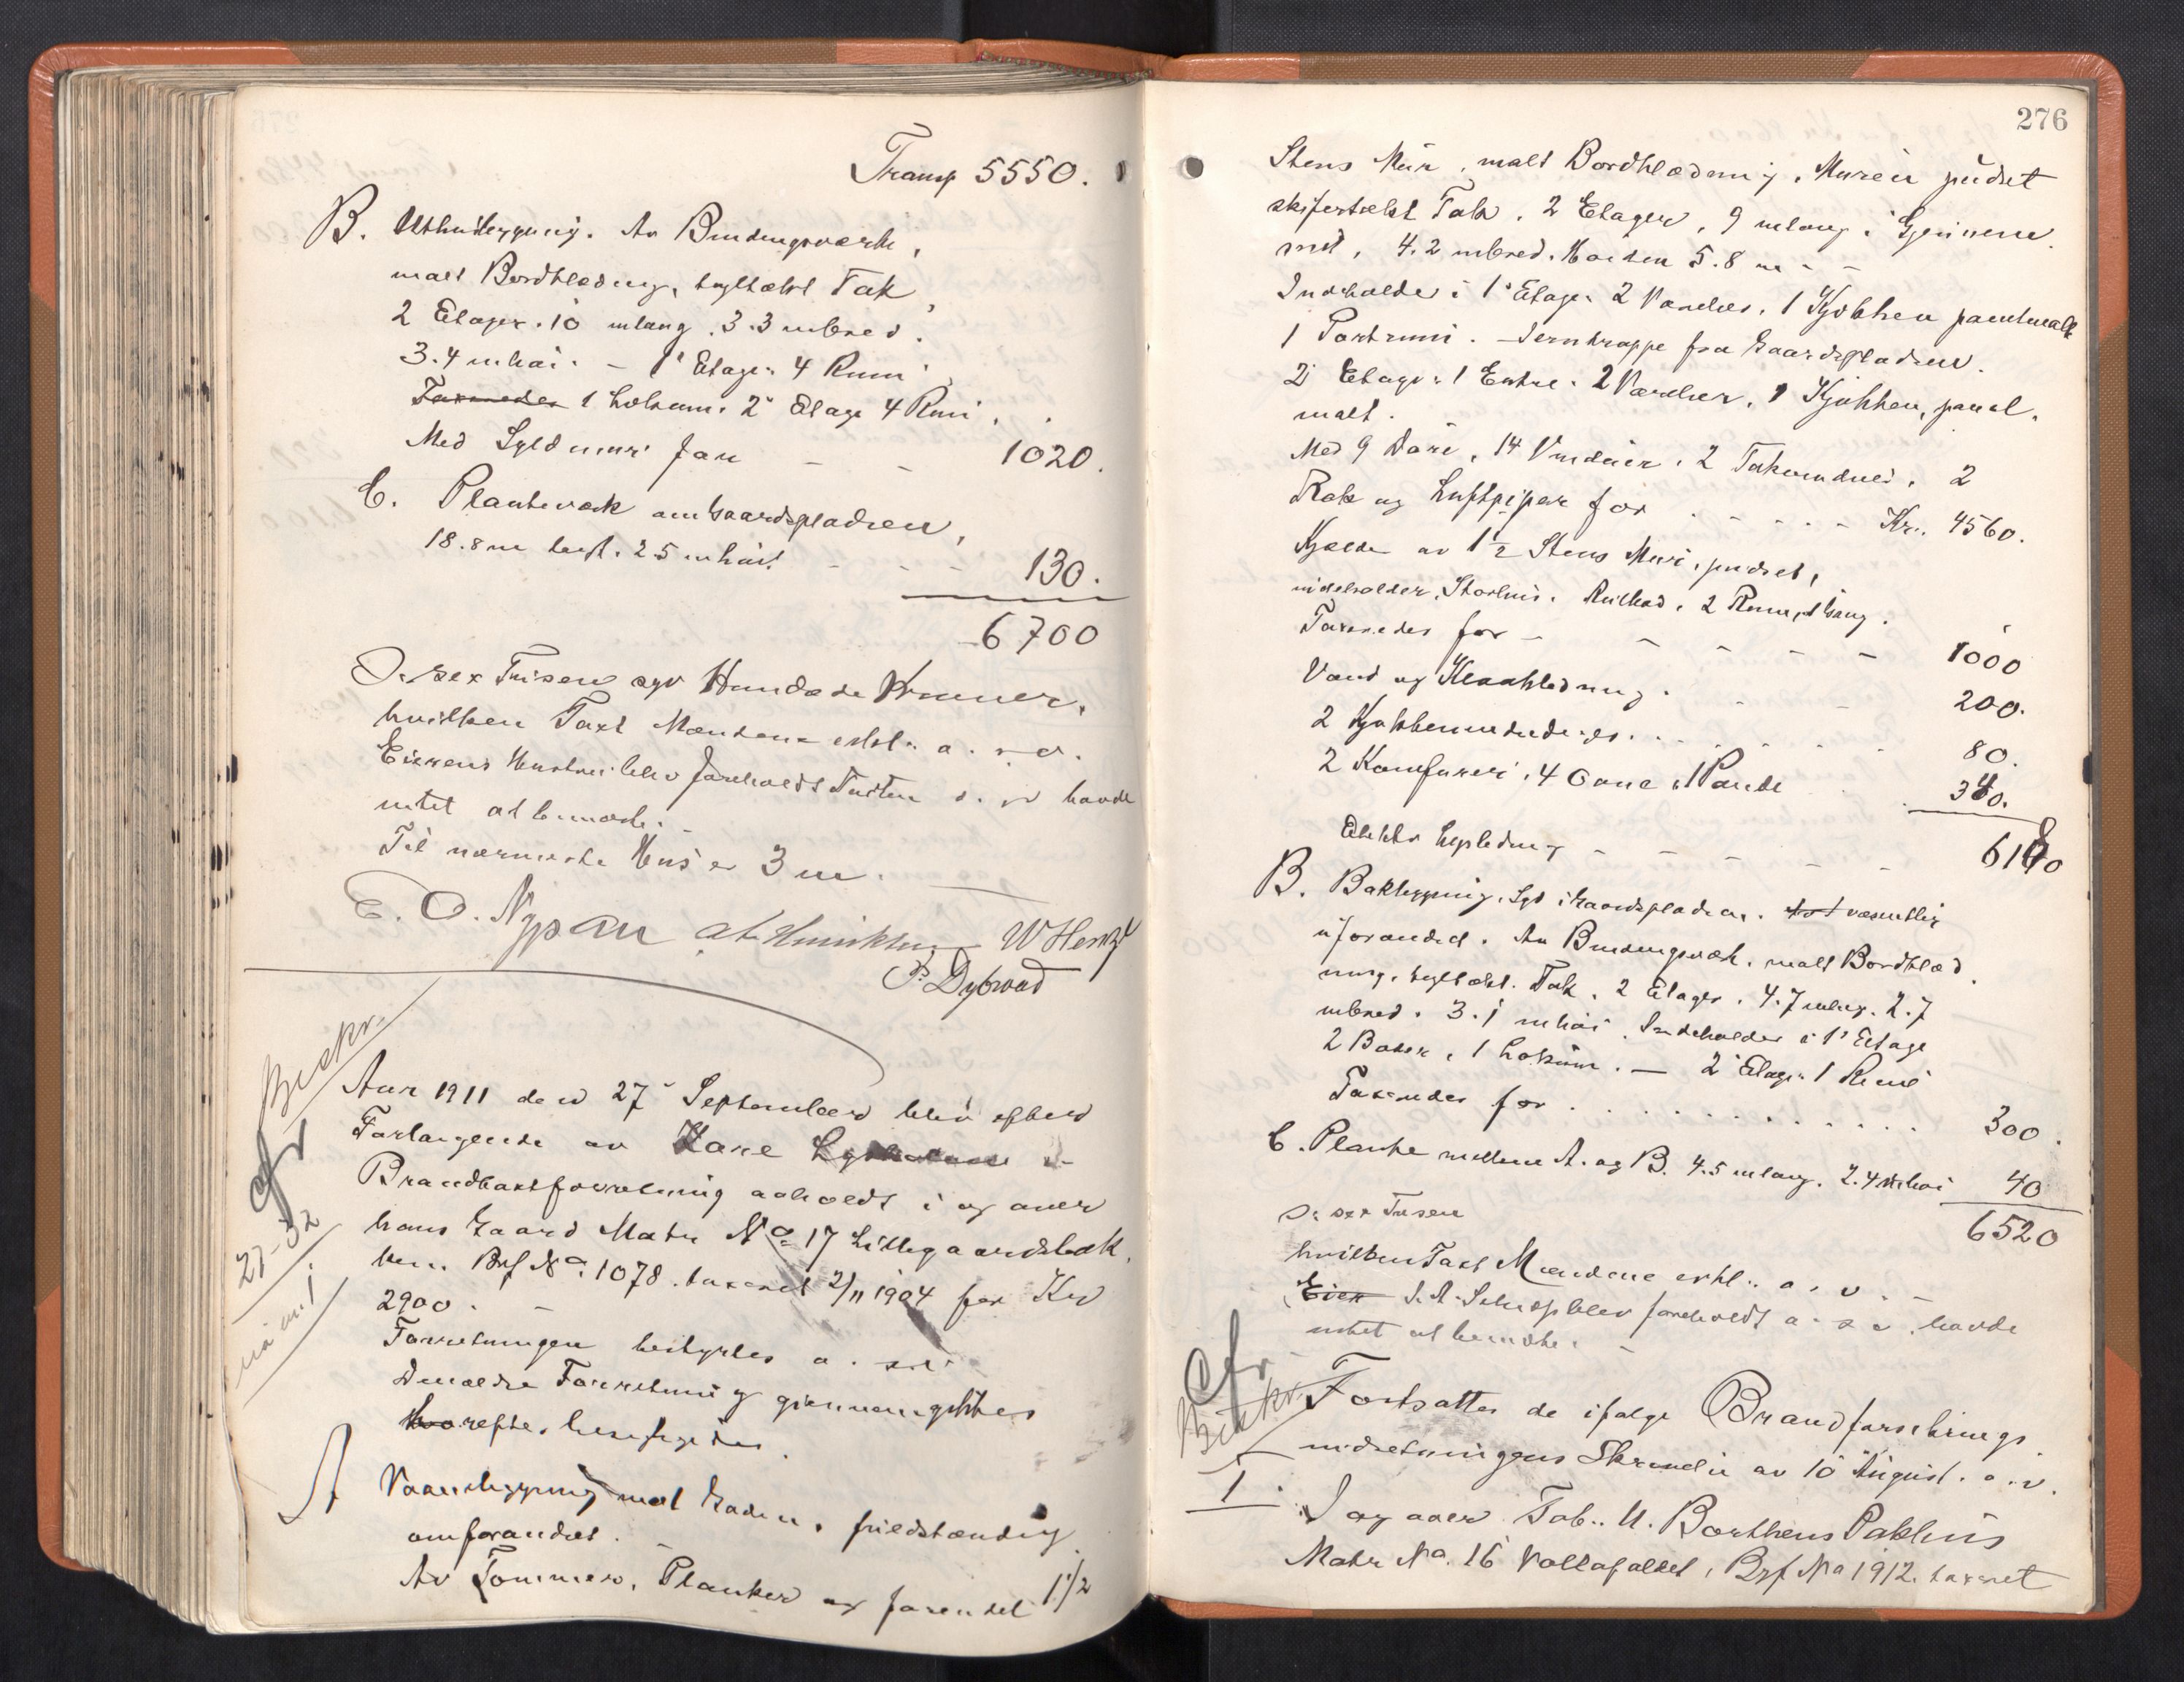 Transp 5550.
B. Uthusbygning. Av Bindingsverk,
malt Bordklædning, tegltækt Tak,
2 Etager. 10 mlang. 3.3 mbred.
3.4 mhøi. - 1' Etage: 4 Rum
Taxeredes 1 Loksum. 2' Etage 4 Rum.
Med Syldmur for - - 1020.
C. Plankeværk om Gaardspladsen,
18.8 m 2.5 mhøit - - - 130.
6700
Sex Tusen syv Hundrede Kroner,
hvilken Taxt Mændene erkl. a. s. v.
Eierens Hustru blev foreholdt Taxten havde
intet at bemærke.
Til nærmeste Hus er 3 m.
E. O. Nypan W Hentzl
P. Dybwad
Bekr.
cfr
27-32
Aar 1911 den 27' September blev efter
Forlangende av Lars
Brandtaxtforretning avholdt i og over
hans Gaard Matr No 17 Lillegaardsbak
ken. Brf No. 1078. taxeret 2/11 1904 for Kr
2900. -
Forretningen bestyrtes a. s. v.
Den ældre Forretning gjennemgikkes
hvorefter besigtigedes.
A Vaanebygning mot Gaden, fuldstændig
omforandret.
Av Tømmer, Planker og forendel 1 1/2
276
Stens Mur, malt Bordklædning, Muren pudset
skifertækt Tak. 2 Etager, 9 mlang i Gjennem
snit, 4.2 mbred. Høiden 5.8 m - -
Indeholder i 1' Etage: 2 Værelser, 1 Kjøkken panelmalt
1 Portrum. - Jerntrappe fra Gaardspladsen.
2' Etage: 1 Entre. 2 Værelser, 1 Kjøkken, panel.
malt.
Med 9 Døre, 14 Vinduer, 2 Takvinduer, 2
Røk og Luftpiper for . . - - - Kr. 4560.
Kjælder av 1 1/2 Stens Mur, pudset,
indeholder, Storhus. Rulbod, 2 Rum, 1 Gang.
Taxeredes for - - - - - 1000
Vand og Kloakledning. - - 200.
2 Kjøkkeninredninger. . . . . . 80.
2 Komfurer, 4 Ovne, 1 Pande 340.
Elektr Lysledning - - - - - 6180
B. Bakbygning. Syd i Gaardspladsen. væsentlig
uforandret. Av Bindingsverk. malt Bordklæd
ning, tegltækt. Tak. 2 Etager. 4.7 mlang. 2.7
mbred. 3.1 mhøi. Indeholder i 1' Etage
2 Boder, 1 Loksum. - 2' Etage: 1 Rum
Taxeredes for . . . . . . . . . . 300.
C. Planke mellem A. og B. 4.5 mlang. 2.4 mhøi 40
6520
sex Tusen
hvilken Taxt Mændene erkl. a. s. v. -
Eier blev foreholdt a. s. v. havde
intet at bemærke. -
cfr
Bekr.
Fortsattes de ifølge Brandforsikrings
indretningens Skrivelse av 10 August. a. v.
1. I og over Fab. U. Borthens Pakhus
Matr No. 16 Vollafaldet, Brf No 1912. taxeret